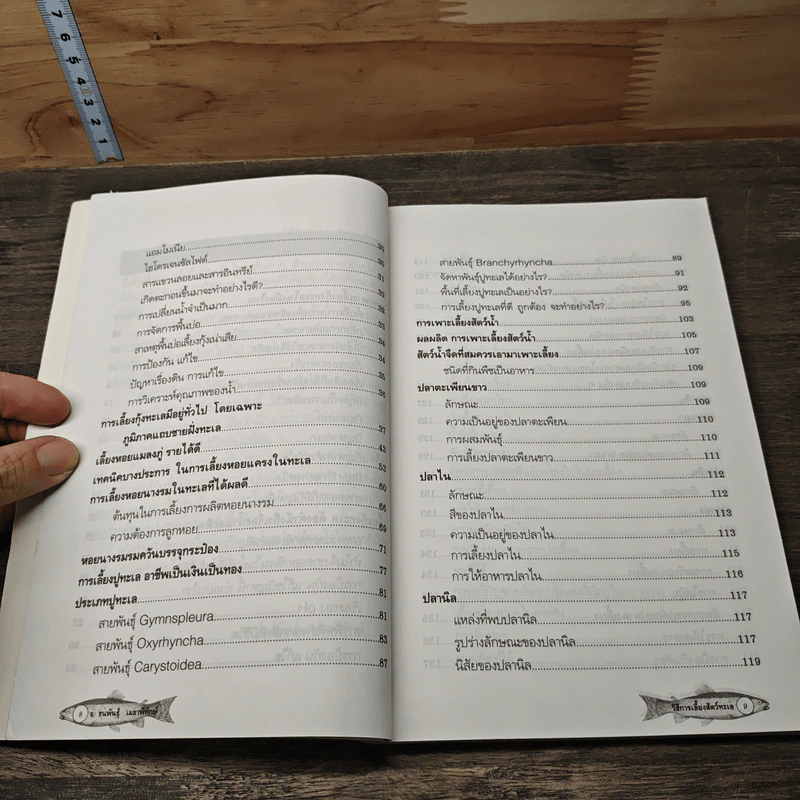 7 6 5 4 3 2 1
แอมโมเนีย
ไฮโดรเจนซัลไฟด์
สารแขวนลอยและสารอินทรีย์
เกิดตะกอนขึ้นมาจะทำอย่างไรดี?
การเปลี่ยนน้ำจำเป็นมาก
การจัดการพื้นบ่อ
สาเหตุพื้นบ่อเลี้ยงกุ้งเน่าเสีย
การป้องกัน แก้ไข
ปัญหาเรื่องดิน การแก้ไข
การวิเคราะห์คุณภาพของน้ำ
การเลี้ยงกุ้งทะเลมีอยู่ทั่วไป โดยเฉพาะ
ภูมิภาคแถบชายฝั่งทะเล 37
เลี้ยงหอยแมลงภู่ รายได้ดี 43
เทคนิคบางประการ ในการเลี้ยงหอยแครงในทะเล 53
การเลี้ยงหอยนางรมในทะเลที่ได้ผลดี 60
ต้นทุนในการเลี้ยงการผลิตหอยนางรม 66
ความต้องการลูกหอย 69
หอยนางรมรมควันบรรจุกระป๋อง 71
การเลี้ยงปูทะเล อาชีพเป็นเงินเป็นทอง 77
ประเภทปูทะเล 81
สายพันธุ์ Gymnspleura 81
สายพันธุ์ Oxyrhyncha 83
สายพันธุ์ Carystoidea 87
8 อ. ธนพันธุ์ เมธาพิทักษ์
สายพันธุ์ Branchyrhyncha 89
จัดหาพันธุ์ปูทะเลได้อย่างไร? 91
พื้นที่เลี้ยงปูทะเลเป็นอย่างไร? 92
การเลี้ยงปูทะเลที่ดี ถูกต้อง จะทำอย่างไร? 95
การเพาะเลี้ยงสัตว์น้ำ 103
ผลผลิต การเพาะเลี้ยงสัตว์น้ำ 105
สัตว์น้ำจืดที่สมควรเอามาเพาะเลี้ยง 107
ชนิดที่กินพืชเป็นอาหาร 109
ปลาตะเพียนขาว 109
ลักษณะ 109
ความเป็นอยู่ของปลาตะเพียน 110
การผสมพันธุ์ 110
การเลี้ยงปลาตะเพียนขาว 111
ปลาไน 112
ลักษณะ 112
สีของปลาไน 113
ความเป็นอยู่ของปลาไน 113
การเลี้ยงปลาไน 115
การให้อาหารปลาไน 116
ปลานิล 117
แหล่งที่พบปลานิล 117
รูปร่างลักษณะของปลานิล 117
นิสัยของปลานิล 119
วิธีการเลี้ยงสัตว์ทะเล 9